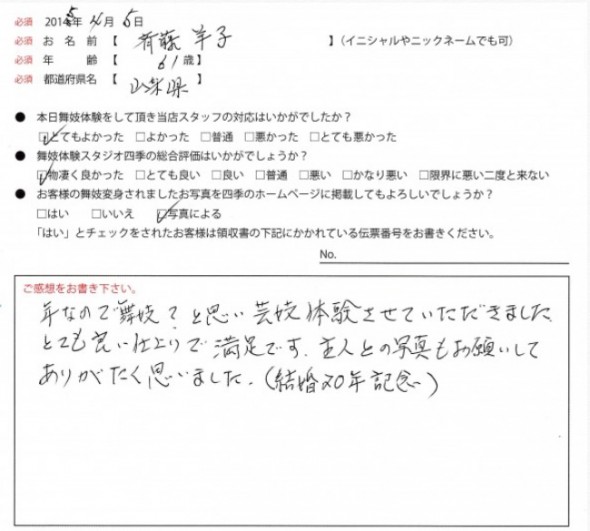 必須 2015年 4月 5日
必須 お 名 前 【 斉藤 羊子 】(イニシャルやニックネームでも可)
必須 年 齢 【 61 歳】
必須 都道府県名 【 山梨県 】
● 本日舞妓体験をして頂き当店スタッフの対応はいかがでしたか?
☑とてもよかった □よかった □普通 □悪かった □とても悪かった
● 舞妓体験スタジオ四季の総合評価はいかがでしょうか?
☑物凄く良かった □とても良い □良い □普通 □悪い □かなり悪い □限界に悪い二度と来ない
● お客様の舞妓変身されましたお写真を四季のホームページに掲載してもよろしいでしょうか?
□はい □いいえ ☑写真による
「はい」とチェックをされたお客様は領収書の下記にかかれている伝票番号をお書きください。
No.
ご感想をお書き下さい。
年なので舞妓?と思い芸妓体験させていただきました。
とても良い仕上りで満足です。主人との写真もお願いして
ありがたく思いました。(結婚20年記念)